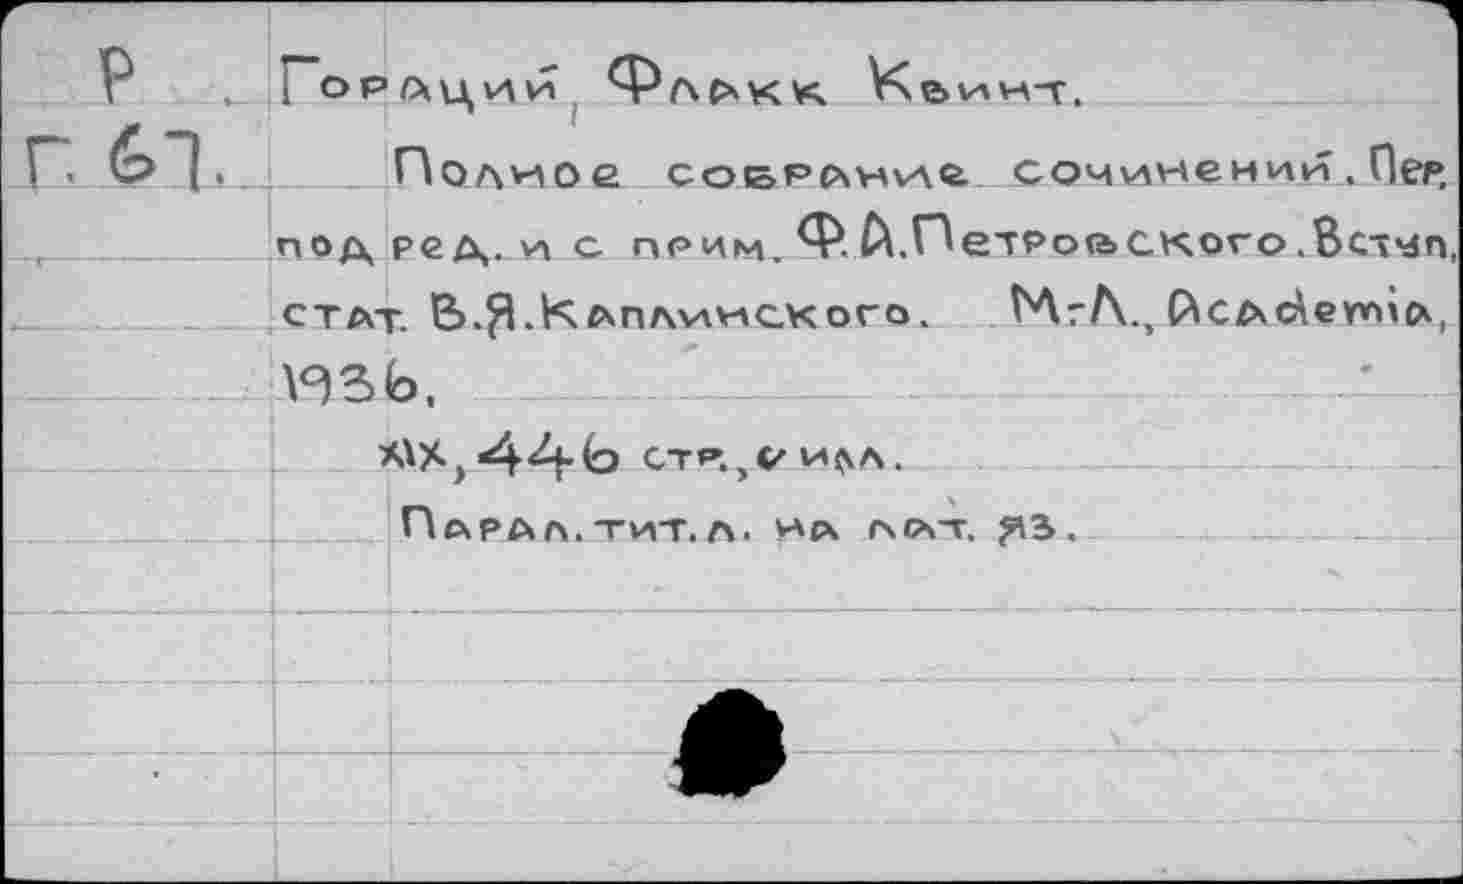 Р. Гораций, Флакк Квинт.
Г. 67. Полное собрание сочинений. Пер.
под ред. и с прим. Ф.А.Петровского. Вступ,
стат. В.Я.Каплинского. М-Л., Academia,
1936,
XIX, 446 стр., с илл.
Парал. тит. л. на лат. яз.